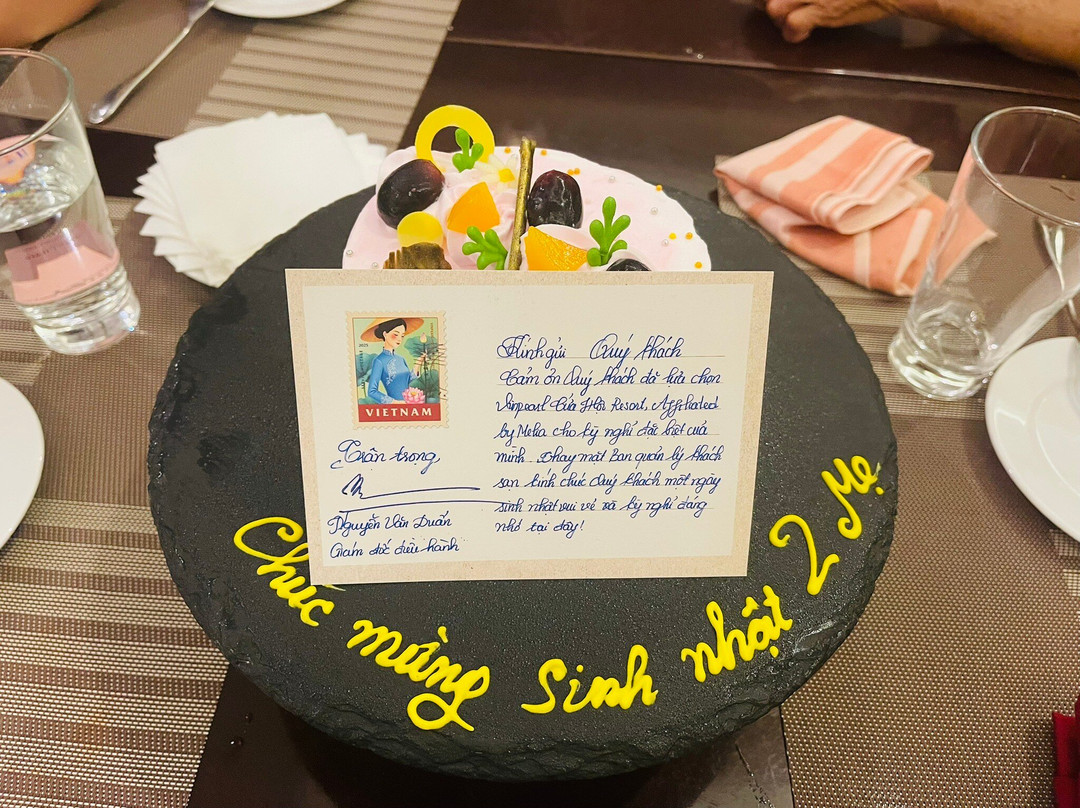 VIETNAM
Trân trọng
Nguyễn Văn Duẩn
Giám đốc điều hành
Kính gửi Quý khách
Cảm ơn Quý khách đã lựa chọn
Vinpearl Cửa Hội Resort, Affiliated
by Melia cho kỳ nghỉ đặc biệt của
mình. Thay mặt ban quản lý khách
sạn kính chúc Quý khách một ngày
sinh nhật vui vẻ và kỳ nghỉ đáng
nhớ tại đây!
Chúc mừng Sinh nhật 2 Mẹ